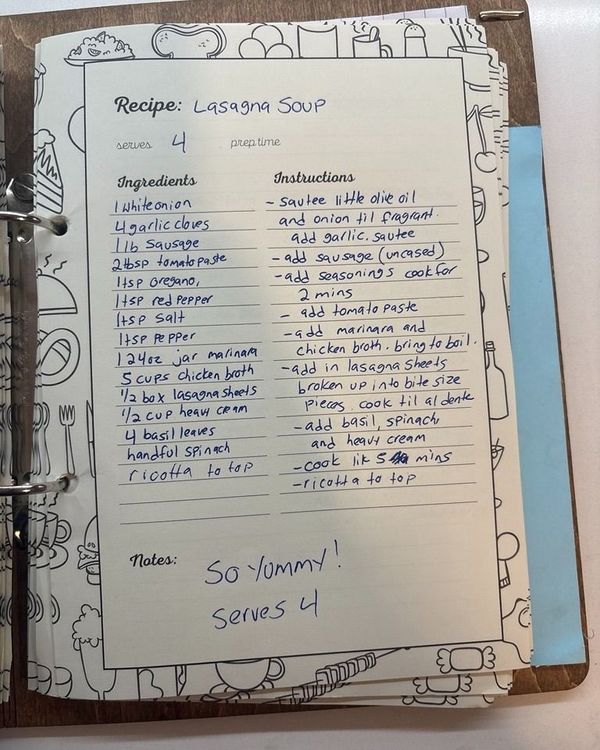 Recipe: Lasagna Soup
serves 4 prep time
Ingredients
1 white onion
4 garlic cloves
1 lb sausage
2 tbsp tomato paste
1 tsp oregano,
1 tsp red pepper
1 tsp salt
1 tsp pepper
1 24oz jar marinara
5 cups chicken broth
1/2 box lasagna sheets
1/2 cup heavy cream
4 basil leaves
handful spinach
ricotta to top
Instructions
- sautee little olive oil
and onion til fragrant.
add garlic. sautee
- add sausage (uncased)
- add seasonings cook for
2 mins
- add tomato paste
- add marinara and
chicken broth. bring to boil.
- add in lasagna sheets
broken up into bite size
pieces. cook til al dente
- add basil, spinach,
and heavy cream
- cook lik 5 mins
- ricotta to top
Notes:
So Yummy!
serves 4